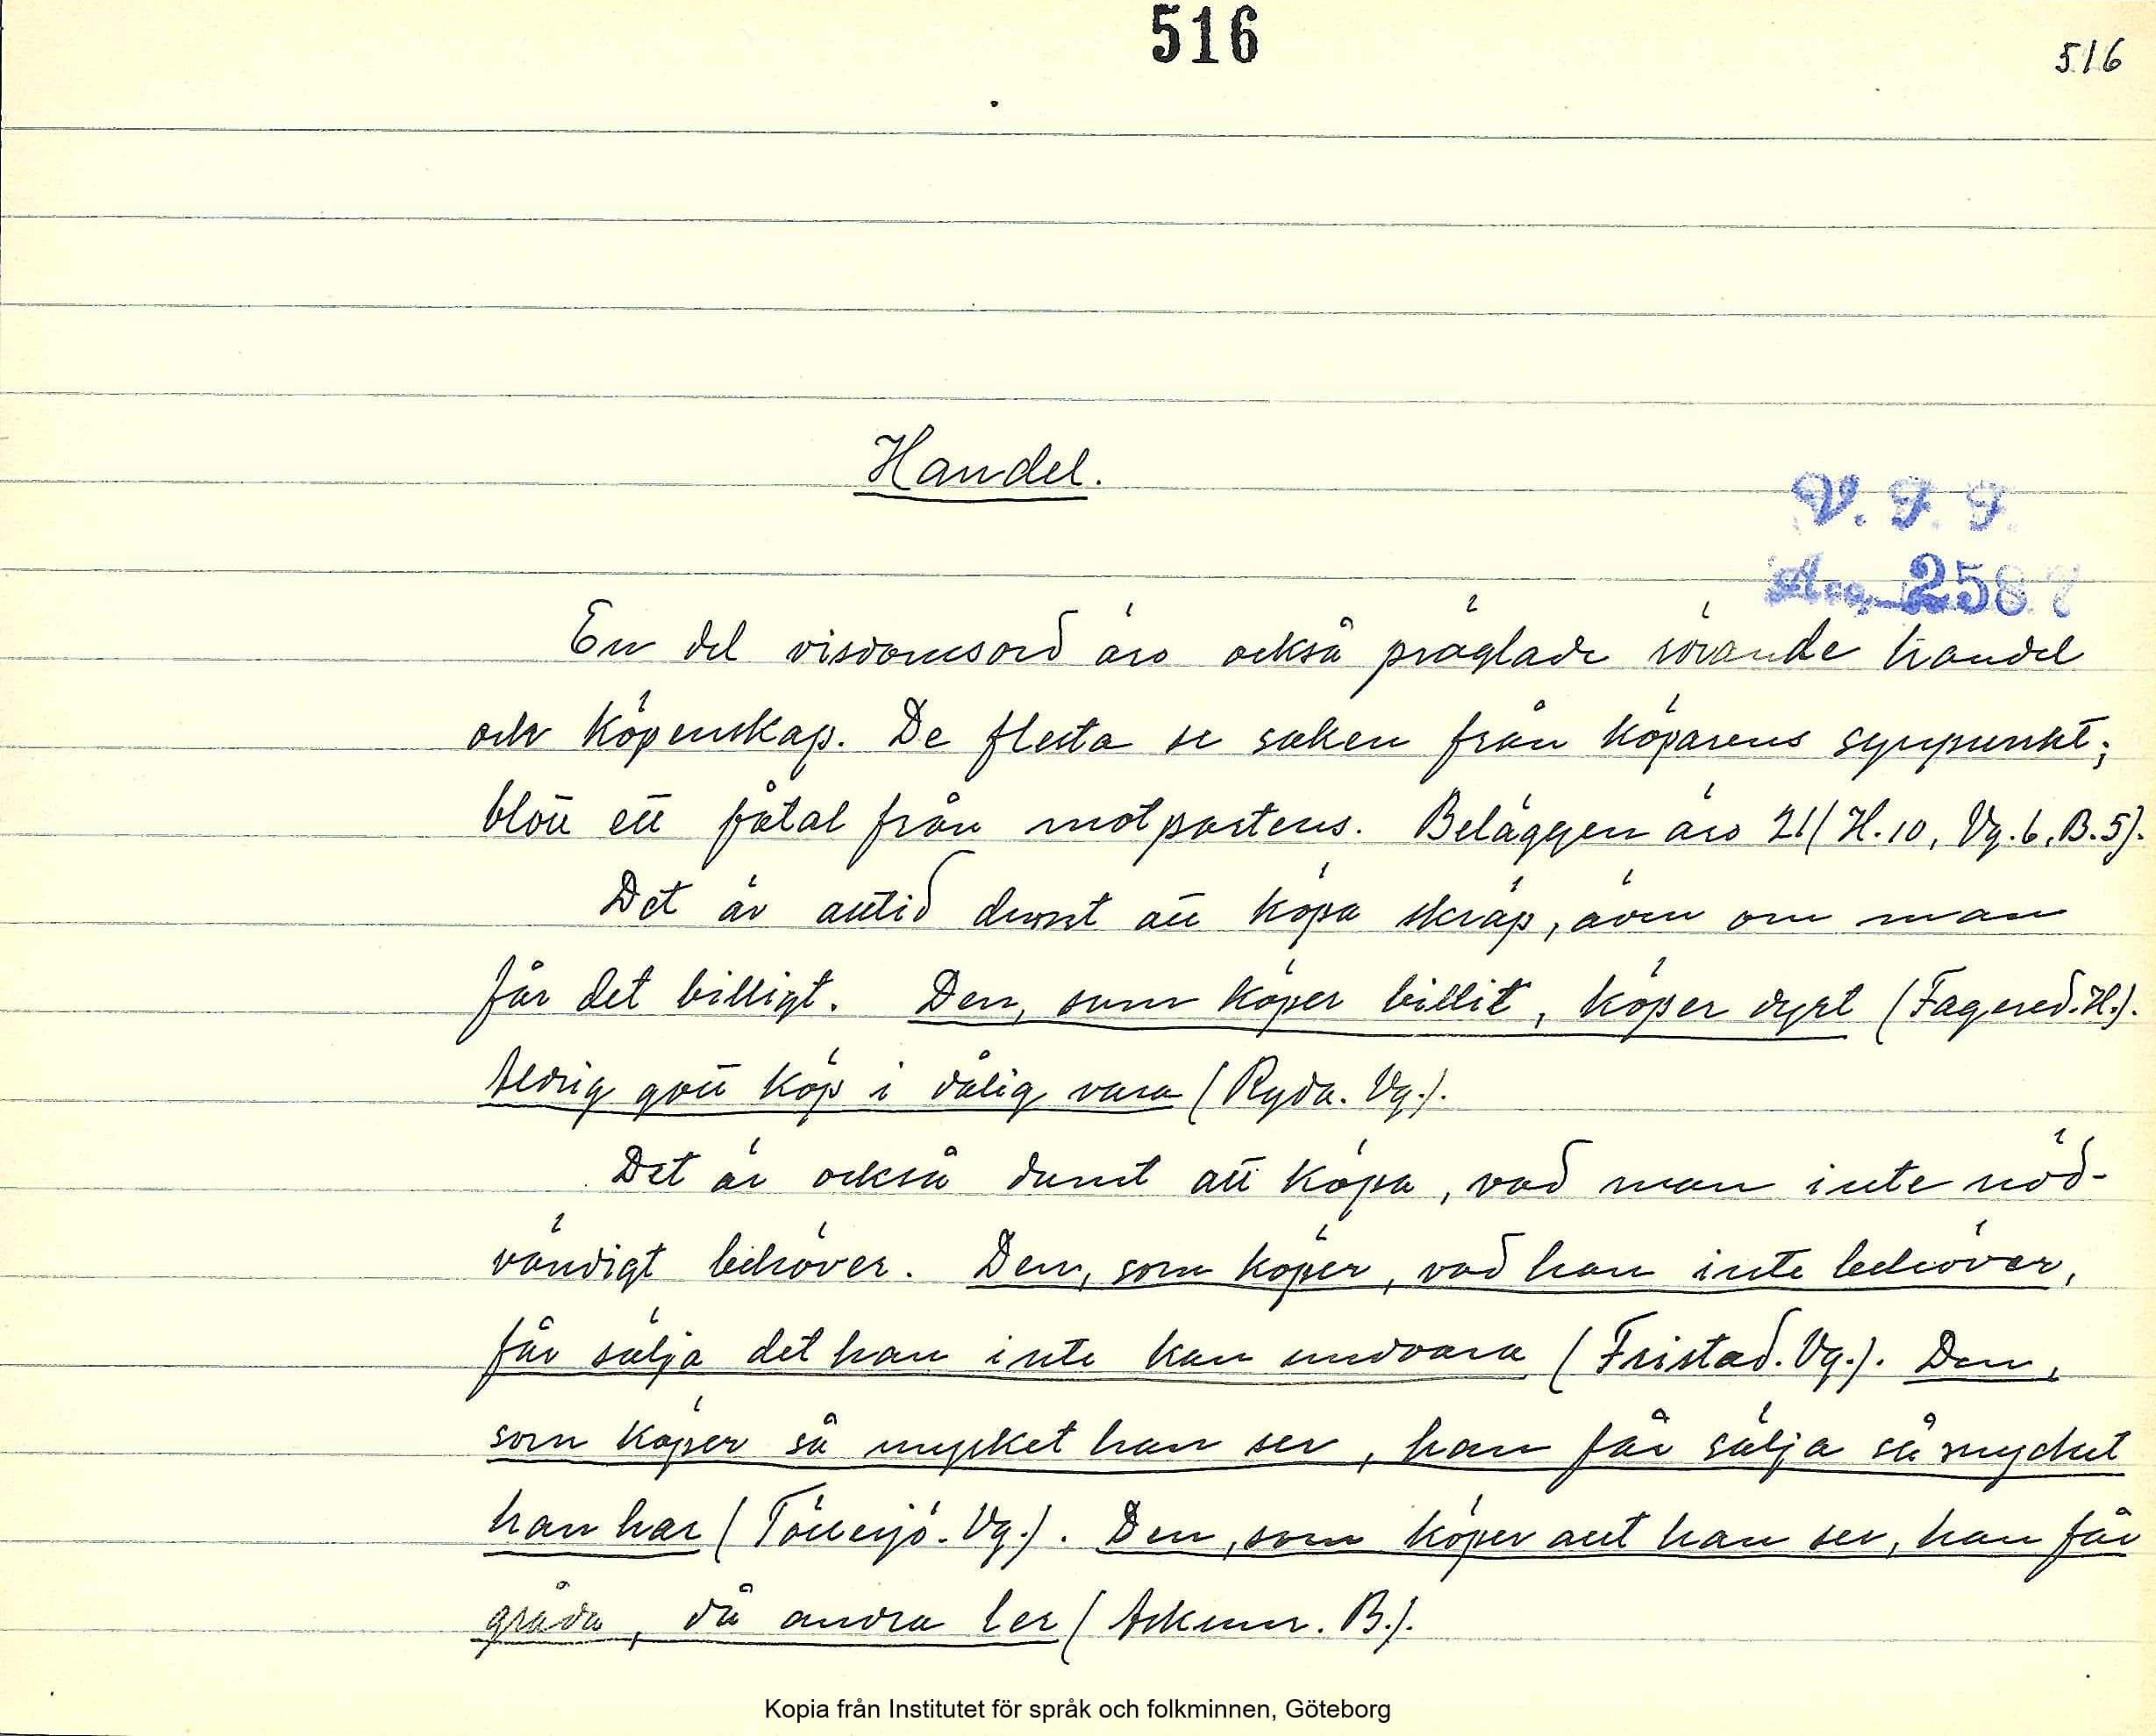 516
516
Handel.
V. F. F.
Acc. 2587
En del visdomsord äro också präglade rörande handel
och köpenskap. De flesta se saken från köparens synpunkt;
blott ett fåtal från motpartens. Beläggen äro 21 (H. 10, Vg. 6, B. 5).
Det är alltid dumt att köpa skräp, även om man
får det billigt. Den, som köper billit, köper dyrt (Fagered. H.).
Aldrig gott köp i dålig vara (Ryda. Vg.).
Det är också dumt att köpa, vad man inte nöd-
vändigt behöver. Den, som köper, vad han inte behöver,
får sälja det han inte kan undvara (Fristad. Vg.). Den,
som köper så mycket han ser, han får sälja så mycket
han har (Töllesjö. Vg.). Den, som köper allt han ser, han får
gråda, då andra ler (Askum. B.).
Kopia från Institutet för språk och folkminnen, Göteborg